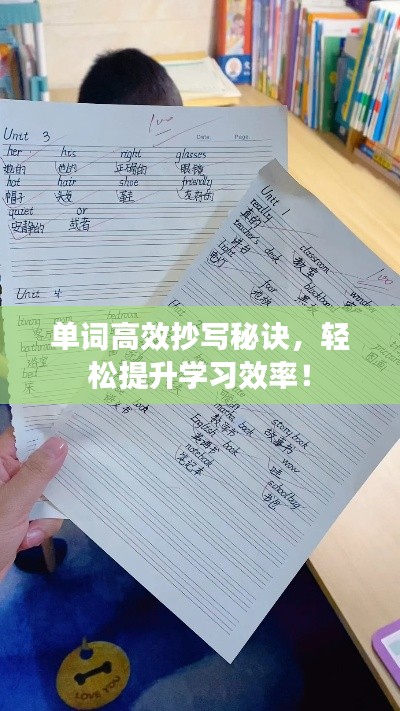 100
Date. Page.
Unit 3
her his right glasses
她的 他的 正确的 眼镜
hot hair shoe friendly
帽子 头发 鞋 友好的
quiet or
安静的 或者
Unit 4
bathroom
浴室
床
Unit 1
really
真的
classroom
教室
teacher's desk
讲台
light
电灯
blackboard
黑板
100
单词高效抄写秘诀，轻
松提升学习效率！
maths book
数学书
storybook
故事书
English book
英语书
wow
哇
notebook
笔记本
schoolbag
书包
LOVE YOU